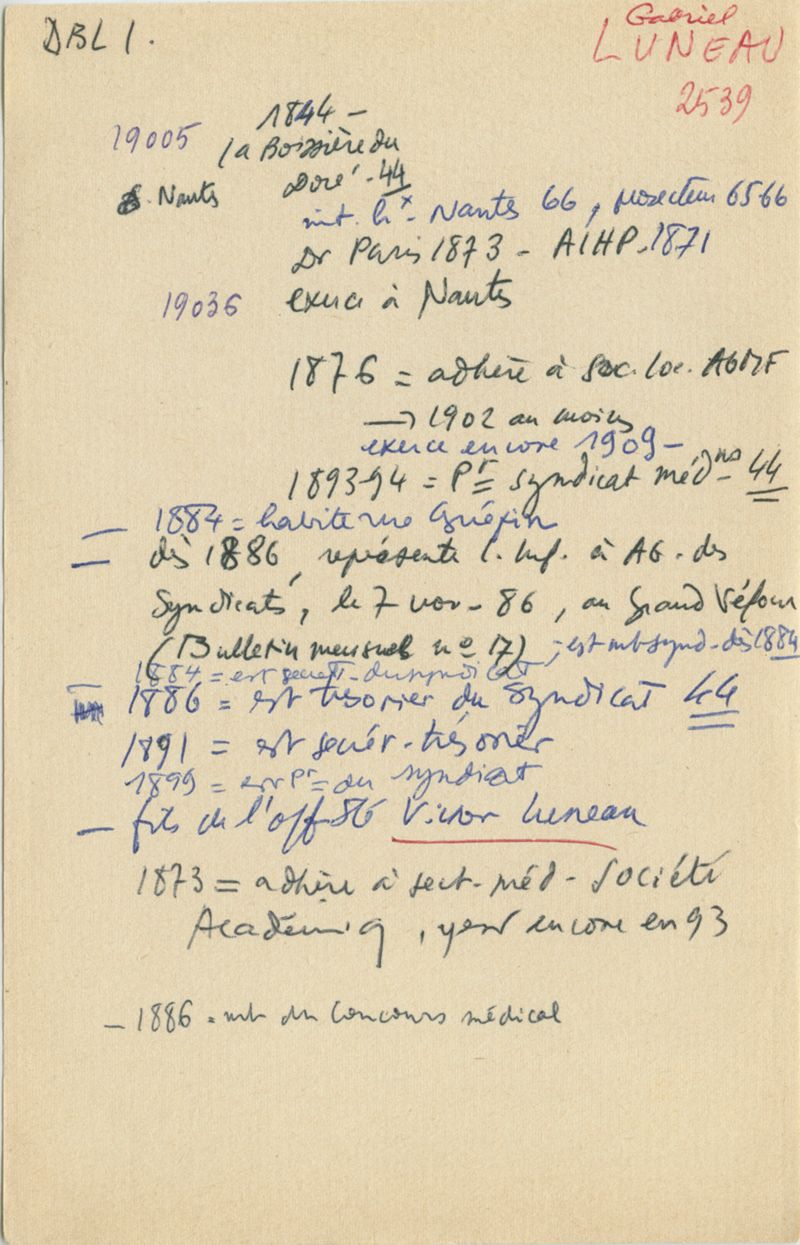 DBL 1.
Gabriel
LUNEAU
2539
1844 -
19005
la Boissière du
Doré - 44
Nantes
int. hx - Nantes 66, prosecteur 65 66
Dr Paris 1873 - AIHP - 1871
19036 exerce à Nantes
1876 = adhère à Soc. loc. AGMF
→ 1902 au moins
exerce encore 1909 -
1893-94 = Pr syndicat méd ns - 44
1884 = habite rue Guépin
dès 1886, représente l. Inf. à AG. des
Syndicats, le 7 nov - 86, au Grand Véfour
(Bulletin mensuel no 17) ; est mb synd - dès 1884
1884 = est secrét. du syndicat
1886 = est trésorier du Syndicat 44
1891 = est secrér-trésorier
1899 = est Pr du syndicat
- fils de l'off Sté Victor Luneau
1873 = adhère à sect - méd - Société
Académiq, y est encore en 93
- 1886 = mb du Concours médical